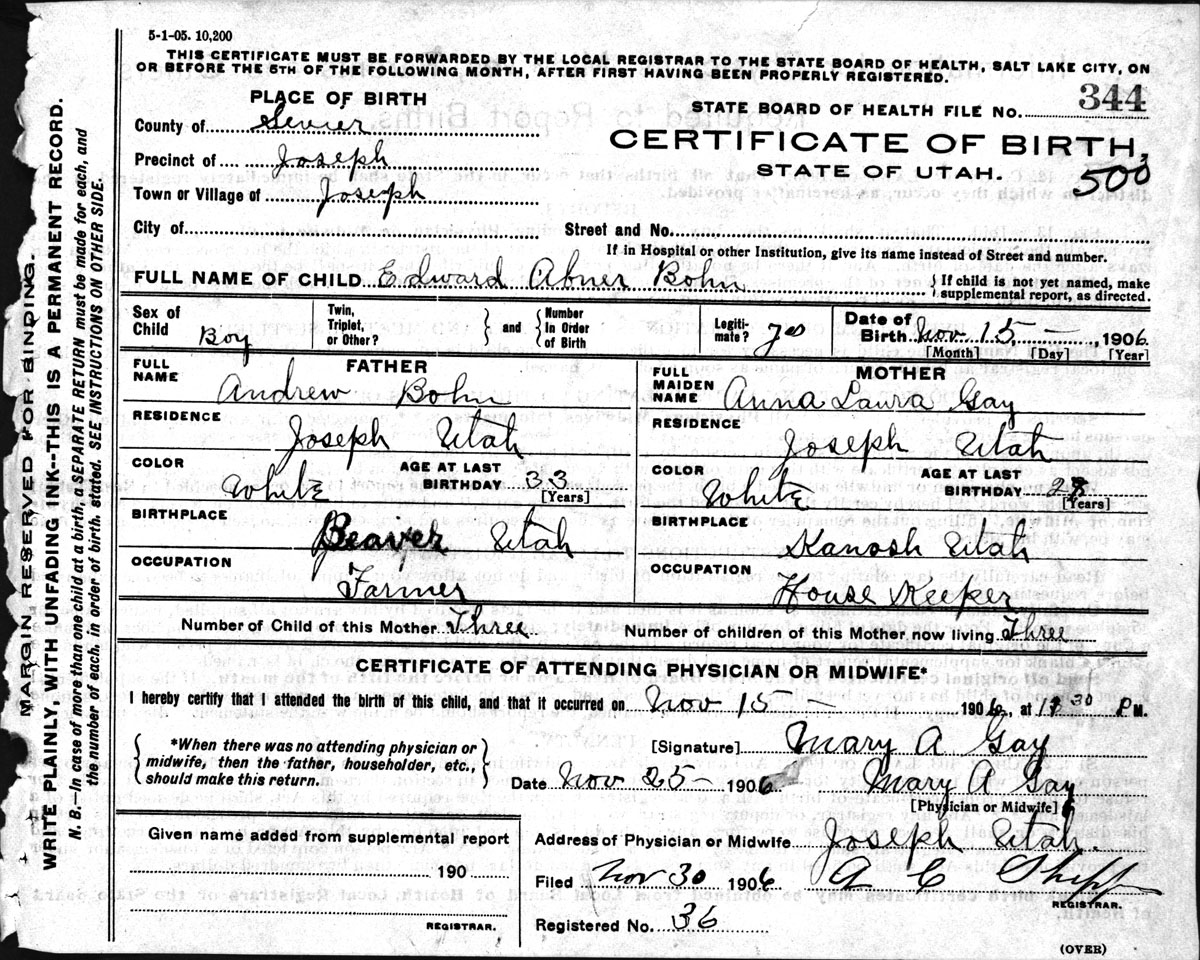 5-1-05. 10,200
THIS CERTIFICATE MUST BE FORWARDED BY THE LOCAL REGISTRAR TO THE STATE BOARD OF HEALTH, SALT LAKE CITY, ON
OR BEFORE THE 5TH OF THE FOLLOWING MONTH, AFTER FIRST HAVING BEEN PROPERLY REGISTERED.
PLACE OF BIRTH
STATE BOARD OF HEALTH FILE No. 344
County of Sevier
CERTIFICATE OF BIRTH,
Precinct of Joseph
STATE OF UTAH.
500
Town or Village of Joseph
City of
Street and No.
If in Hospital or other Institution, give its name instead of Street and number.
FULL NAME OF CHILD Edward Abner Bohn
{ If child is not yet named, make supplemental report, as directed.
Sex of Child Boy
Twin, Triplet, or Other? } and { Number In Order of Birth
Legitimate? Yes
Date of Birth Nov 15, 1906
[Month] [Day] [Year]
FATHER
FULL NAME Andrew Bohn
RESIDENCE
Joseph Utah
COLOR White
AGE AT LAST BIRTHDAY 33
[Years]
BIRTHPLACE
Beaver Utah
OCCUPATION
Farmer
MOTHER
FULL MAIDEN NAME Anna Laura Gay
RESIDENCE
Joseph Utah
COLOR White
AGE AT LAST BIRTHDAY
[Years]
BIRTHPLACE
Kanosh Utah
OCCUPATION
House Keeper
Number of Child of this Mother Three
Number of children of this Mother now living Three
CERTIFICATE OF ATTENDING PHYSICIAN OR MIDWIFE*
I hereby certify that I attended the birth of this child, and that it occurred on Nov 15 - 1906, at 30 P M.
{ *When there was no attending physician or midwife, then the father, householder, etc., should make this return. }
[Signature] Mary A Gay
Date Nov 25- 1906 Mary A Gay
[Physician or Midwife]
Given name added from supplemental report
190
REGISTRAR.
Address of Physician or Midwife Joseph Utah.
Filed Nov 30 1906 A C Shipp
REGISTRAR.
Registered No. 36
(OVER)
MARGIN RESERVED FOR BINDING.
WRITE PLAINLY, WITH UNFADING INK--THIS IS A PERMANENT RECORD.
N. B.—In case of more than one child at a birth, a SEPARATE RETURN must be made for each, and
the number of each, in order of birth, stated. SEE INSTRUCTIONS ON OTHER SIDE.